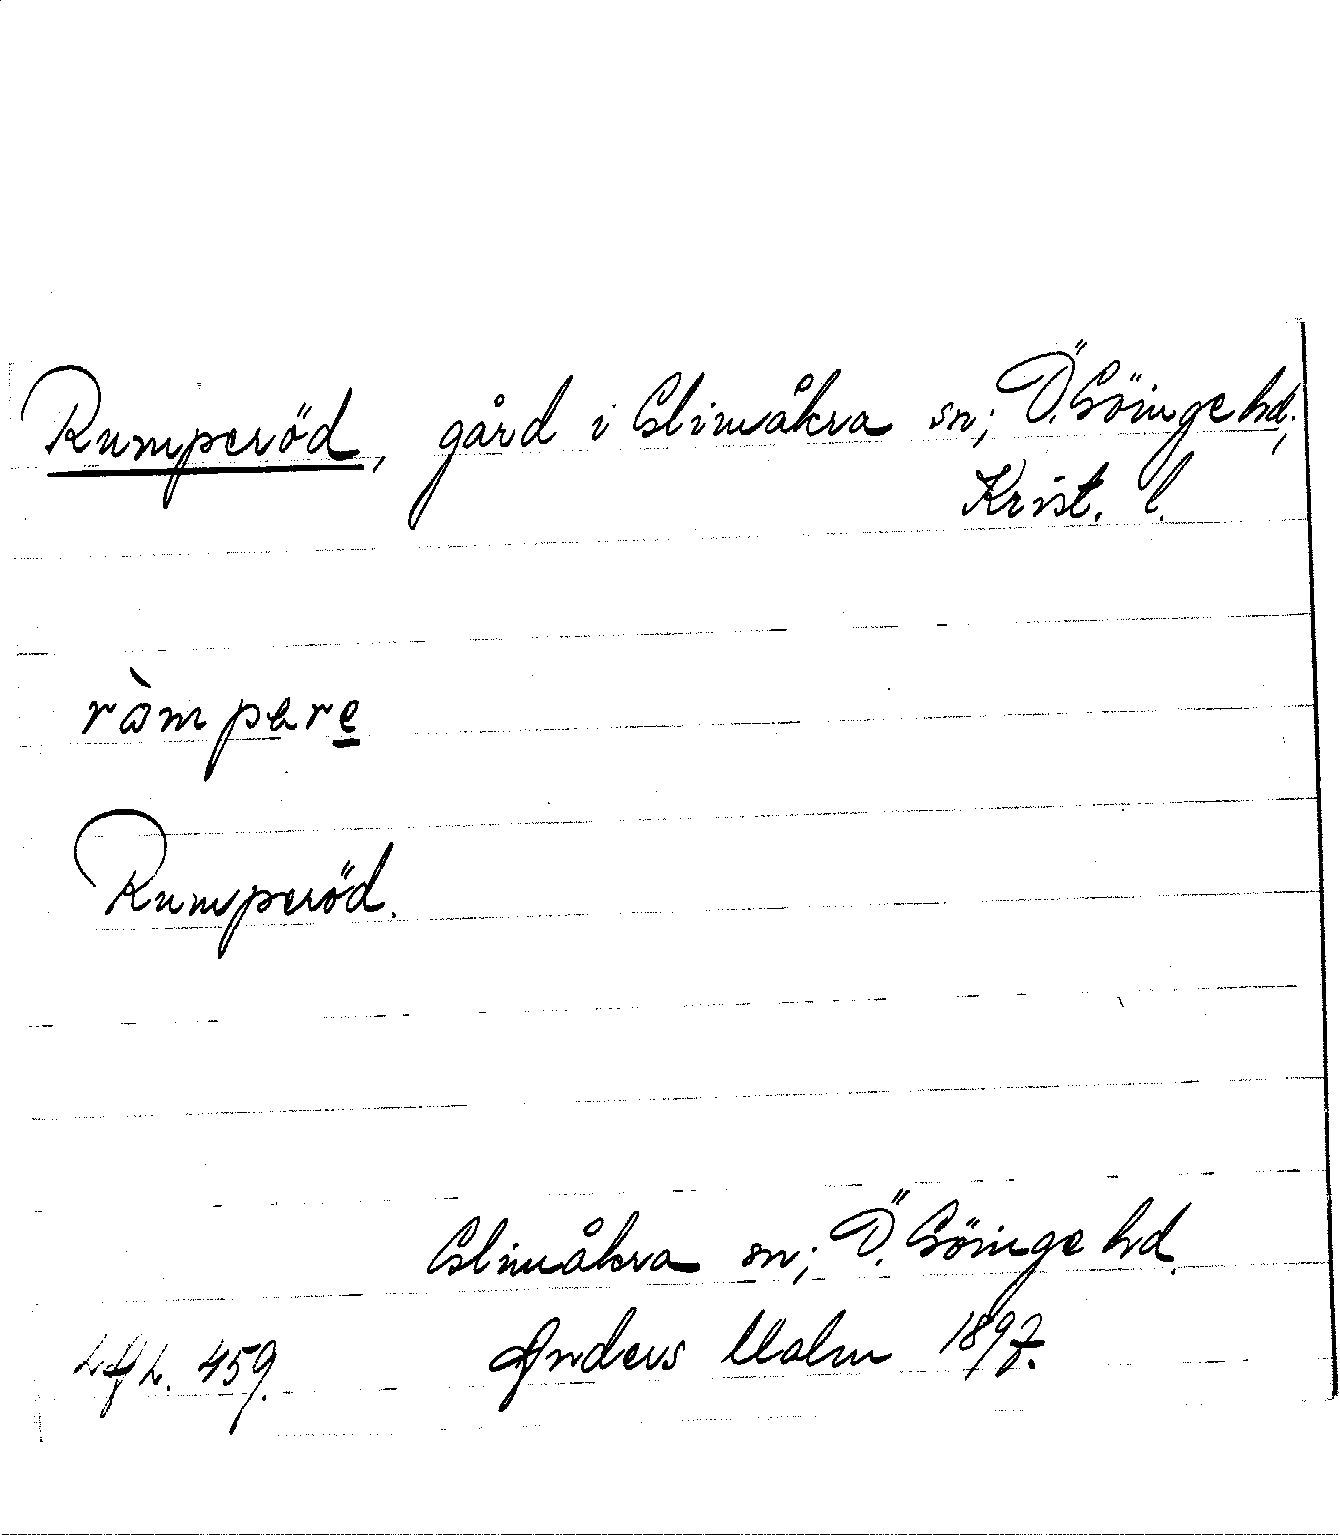 Rumperöd, gård i Glimåkra sn; Ö. Göinge hd;
Krist. l.
ròmpere
Rumperöd.
Glimåkra sn; Ö. Göinge hd.
459. Anders Malm 1897.